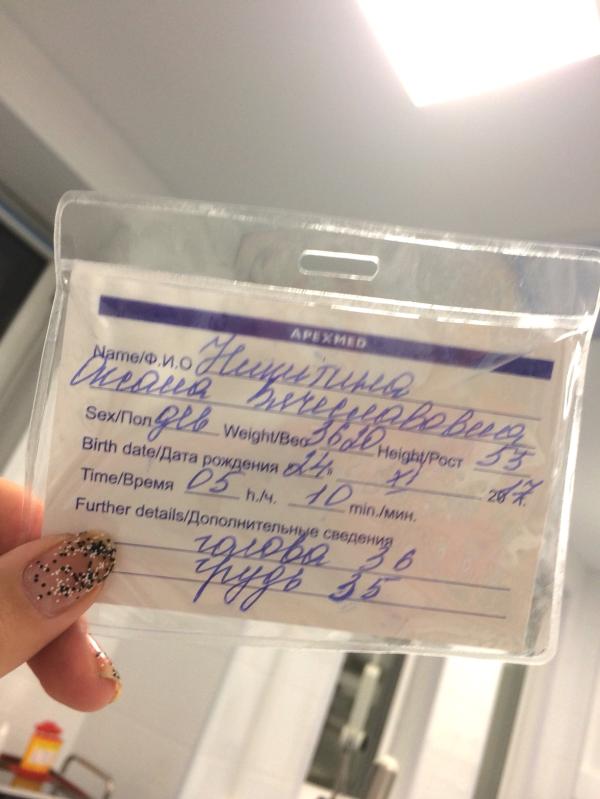 APEXMED
Name/Ф.И.О Никитина
Оксана Вячеславовна
Sex/Пол дев Weight/Вес 3620 Height/Рост 53
Birth date/Дата рождения 24. XI 2017.
Time/Время 05 h./ч. 10 min./мин.
Further details/Дополнительные сведения
голова 36
грудь 35